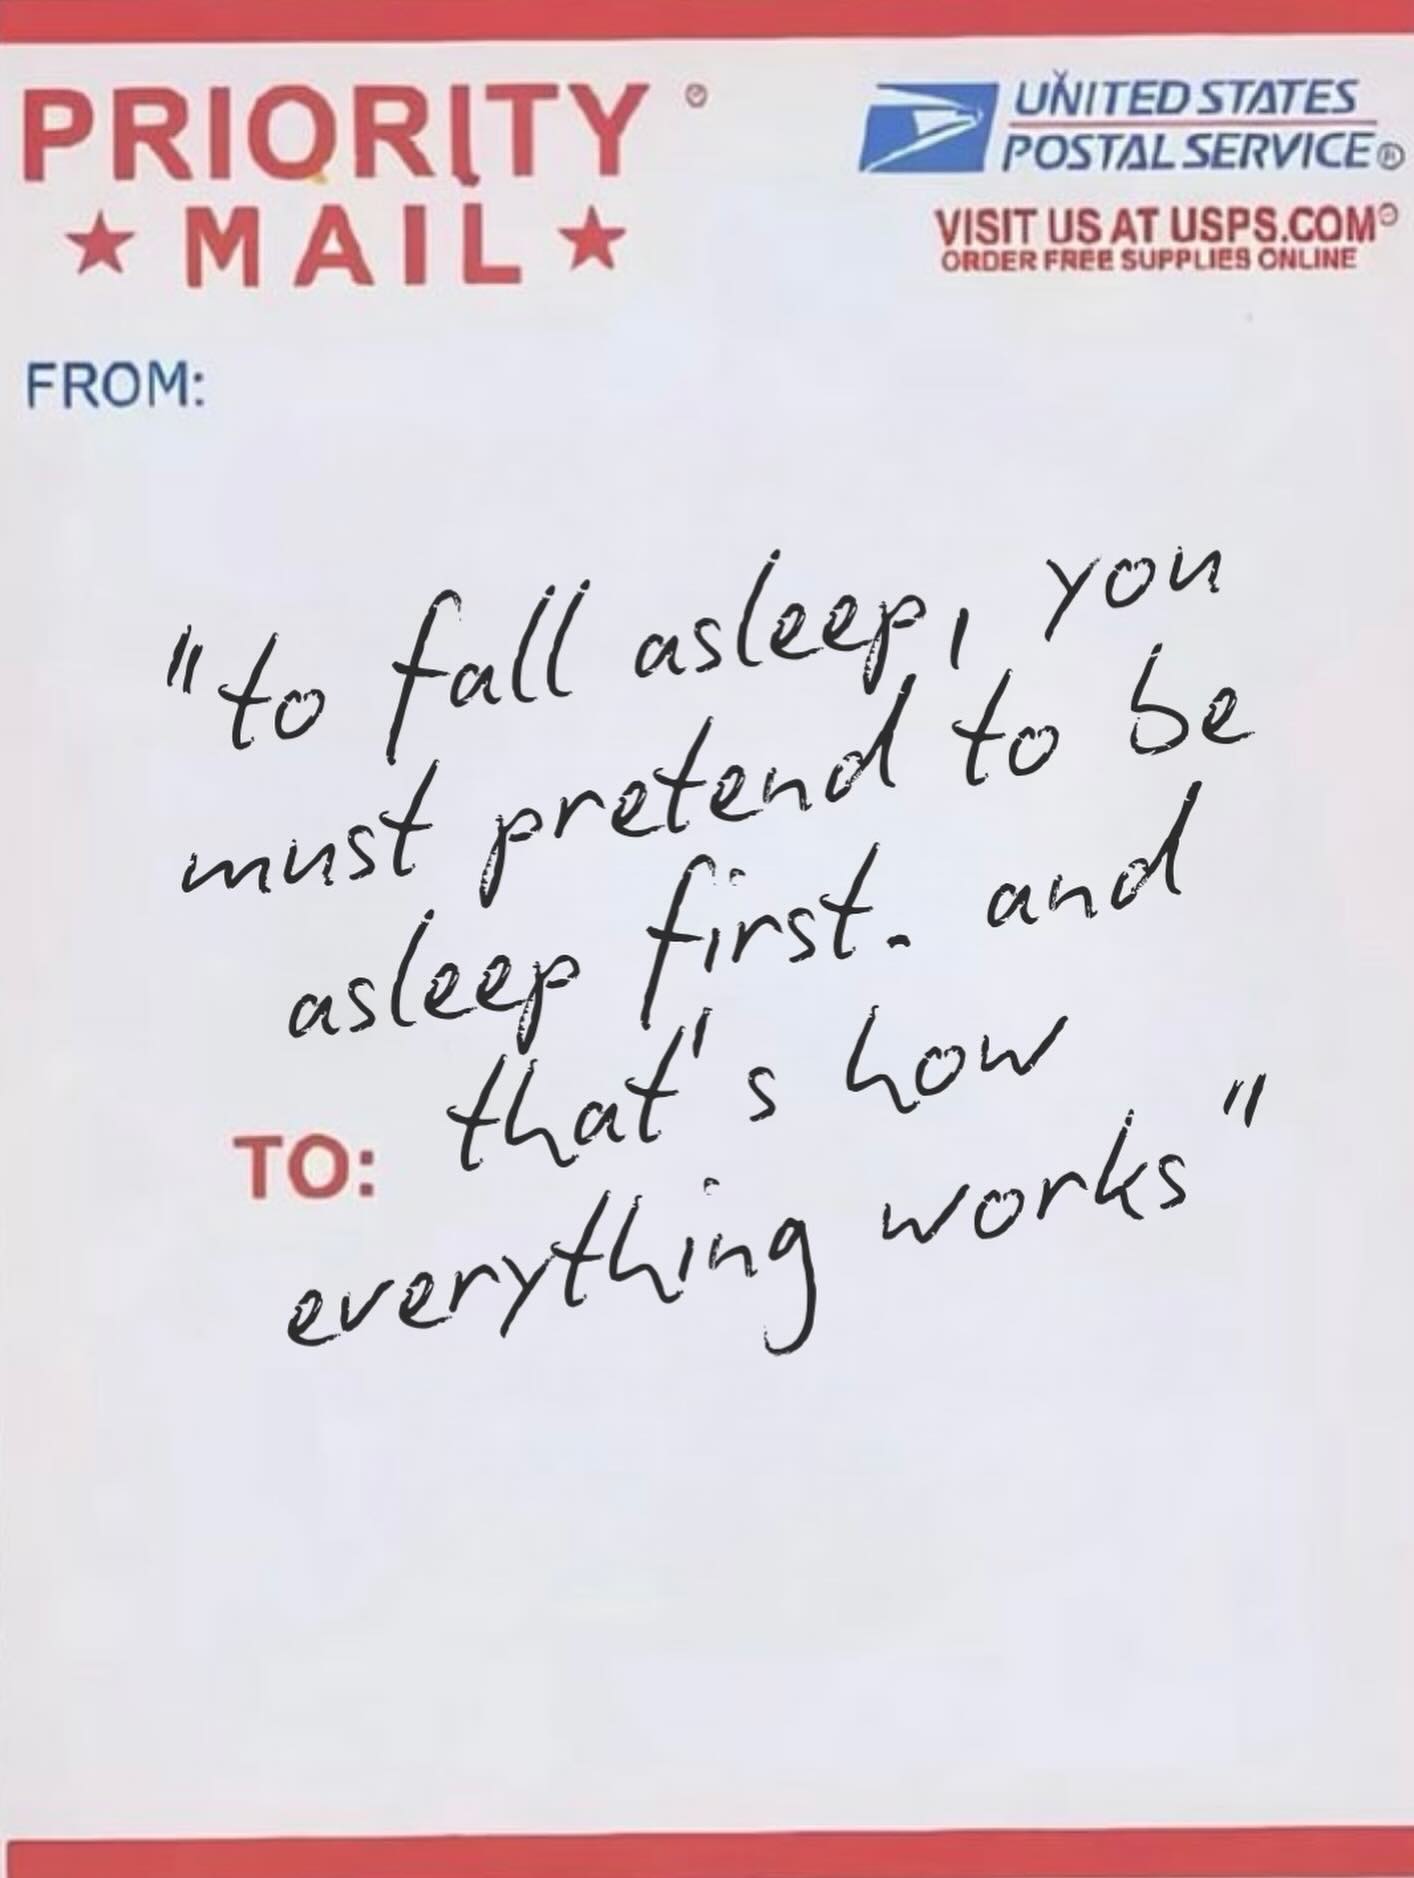 PRIORITY®
★ MAIL ★
UNITED STATES
POSTAL SERVICE®
VISIT US AT USPS.COM®
ORDER FREE SUPPLIES ONLINE
FROM:
"to fall asleep, you
must pretend to be
asleep first. and
that's how
TO:
everything works"